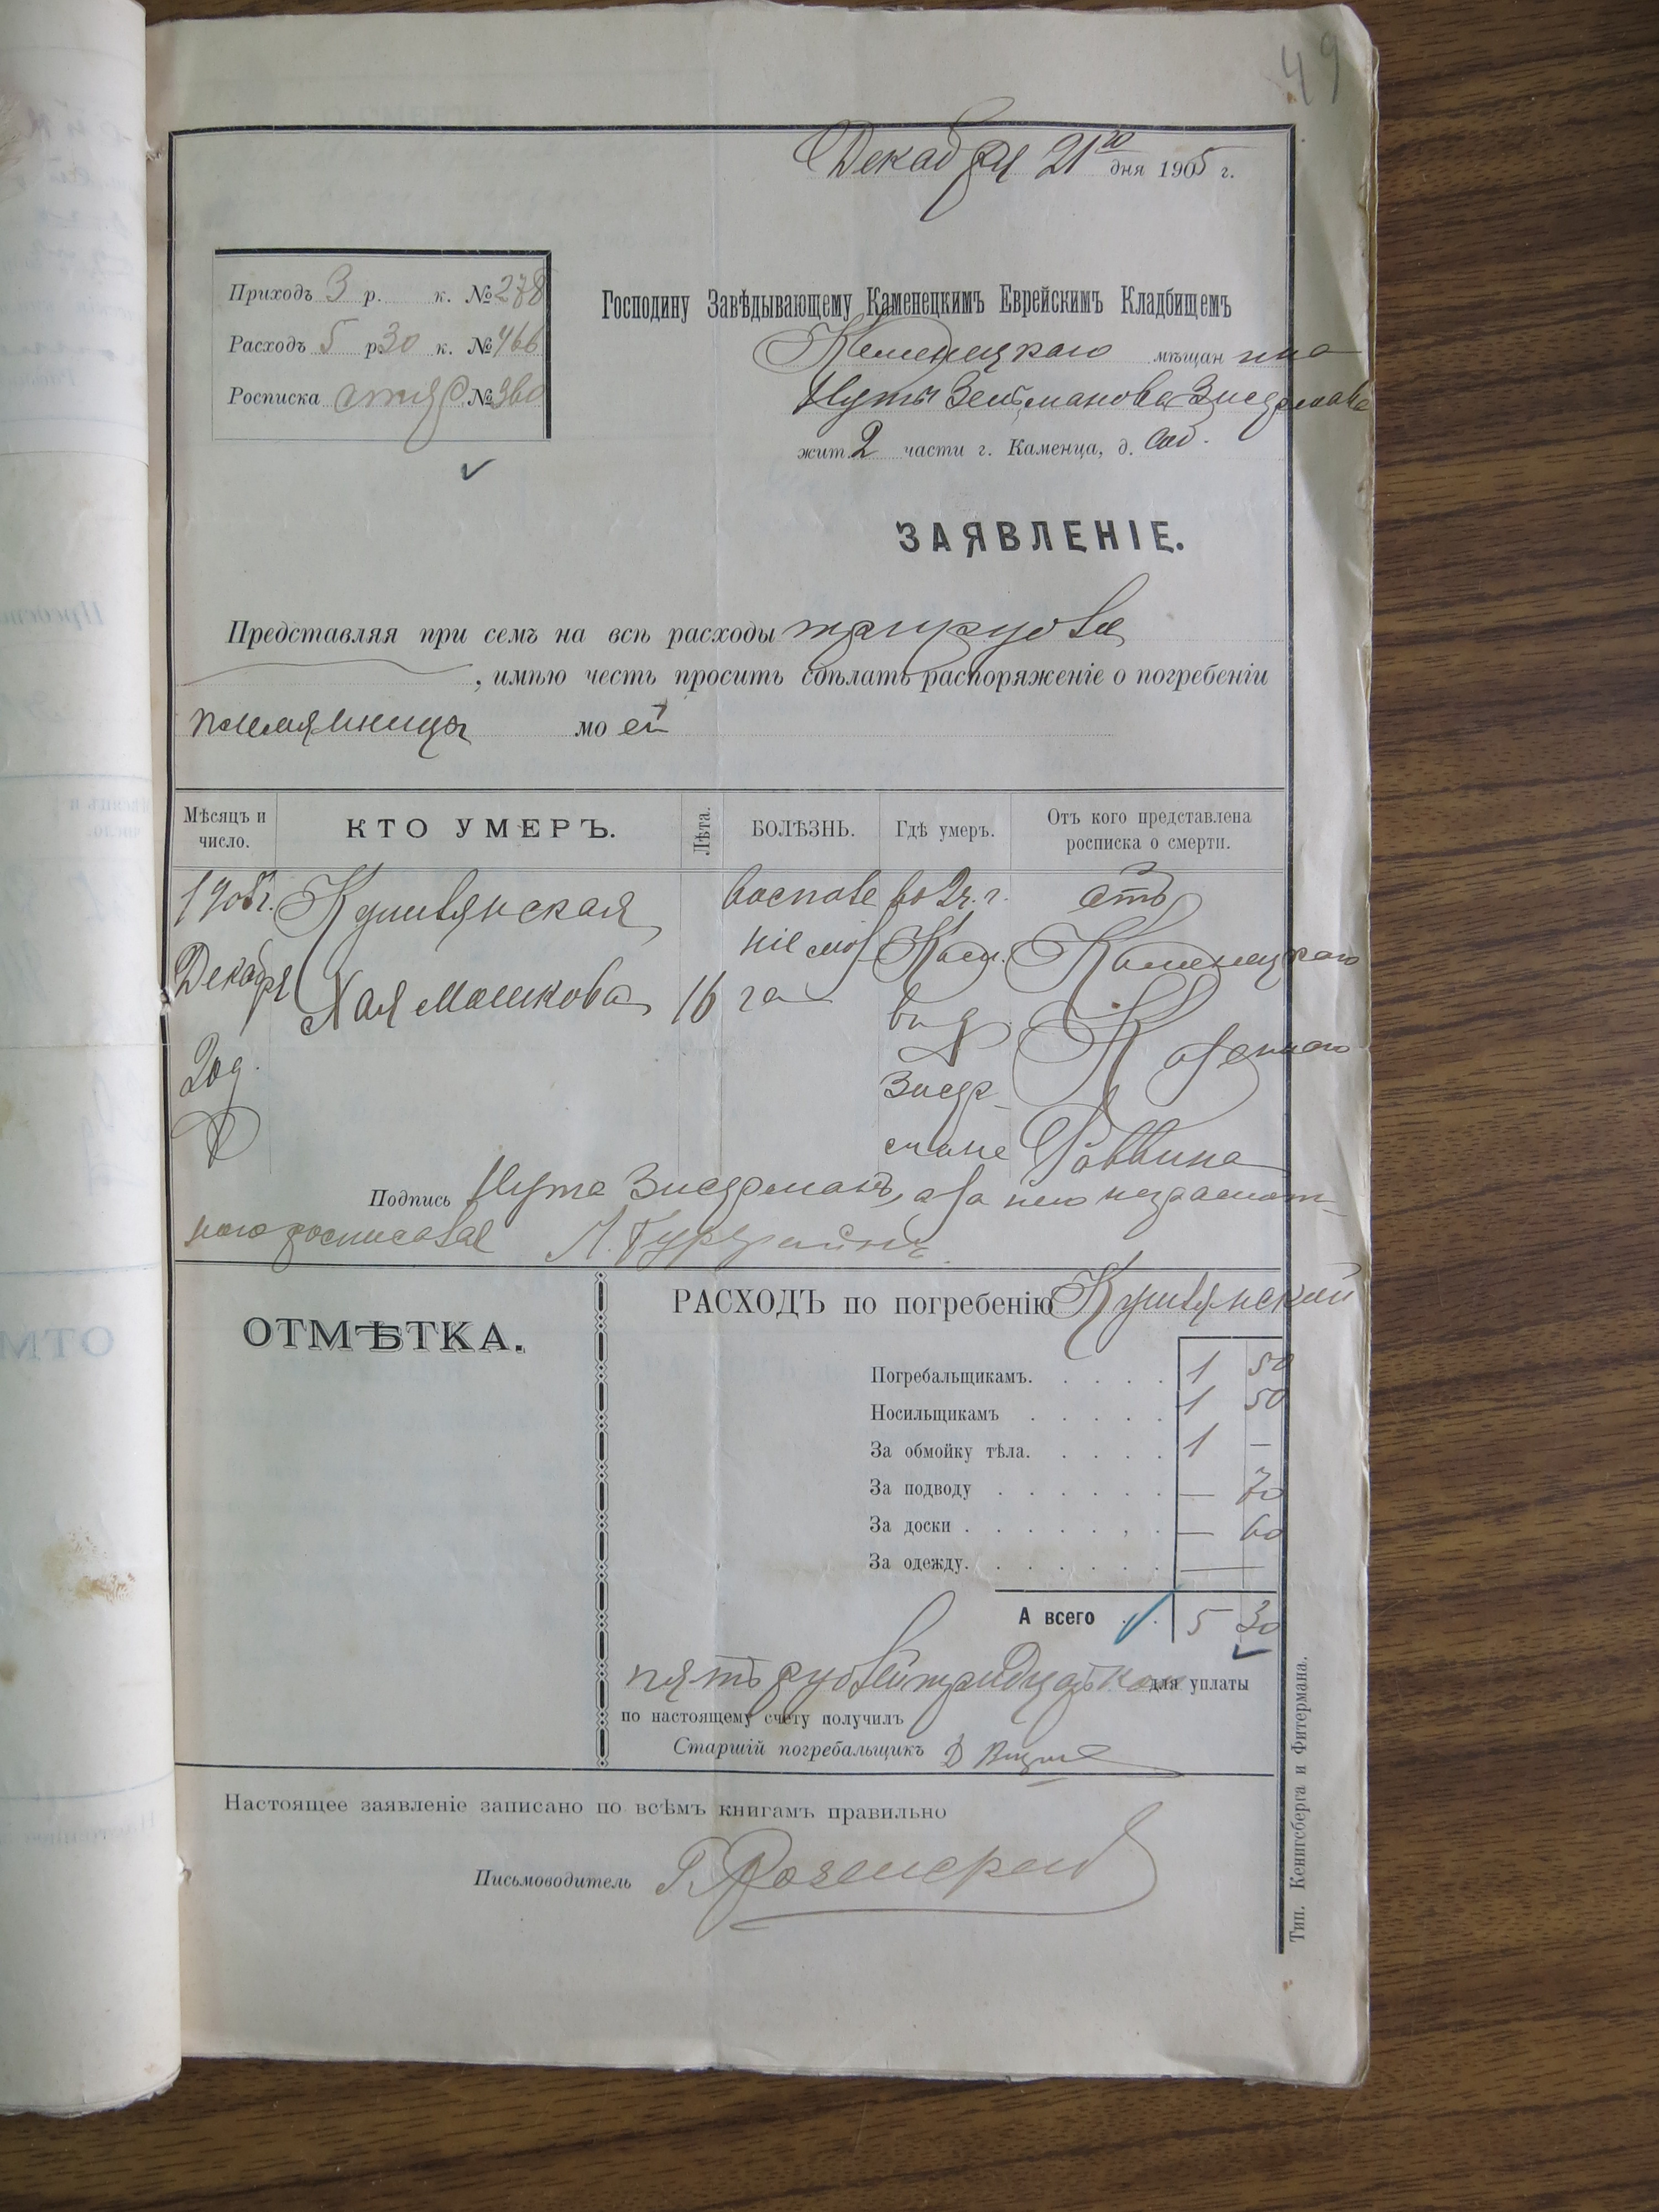 49
Декабря 21го дня 1905 г.
Приходъ 3 р. к. № 278
Расходъ 5 р 30 к. № 466
Росписка № 360
Господину Завѣдывающему Каменецкимъ Еврейскимъ Кладбищемъ
Каменецкаго мѣщанина
Нуты Зейдманова Зисермана
жит. 2 части г. Каменца, д. Соб.
ЗАЯВЛЕНІЕ.
Представляя при семъ на всѣ расходы три рубля
, имѣю честь просить сдѣлать распоряженіе о погребеніи
племянницы моей
Мѣсяцъ и число.
КТО УМЕРЪ.
Лѣта.
БОЛѢЗНЬ.
Гдѣ умеръ.
Отъ кого представлена росписка о смерти.
1905г. Кушвянская воспале во 2 ч. г. отъ
ніе моз Кам. Каменецкаго
Декабря Хая Мошкова 16 га въ д Казеннаго
20 д. Зисер
мана Раввина
Подпись Нута Зисерманъ, а за него неграмот-
наго росписался Л. Гурфайнъ
ОТМѢТКА.
РАСХОДЪ по погребенію Кушвянской
Погребальщикамъ. 1 50
Носильщикамъ 1 50
За обмойку тѣла. 1 —
За подводу — 70
За доски — 60
За одежду. —
А всего 5 30
пять рублей тридцать коп для уплаты
по настоящему счету получилъ
Старшій погребальщикъ Д
Настоящее заявленіе записано по всѣмъ книгамъ правильно
Письмоводитель Г. Розенкранц
Тип. Кенигсберга и Фитермана.